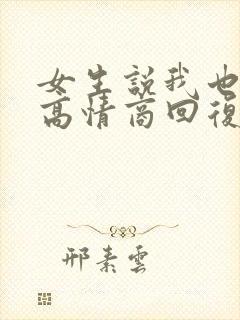 女生説我也
高情商回復
邢素雲